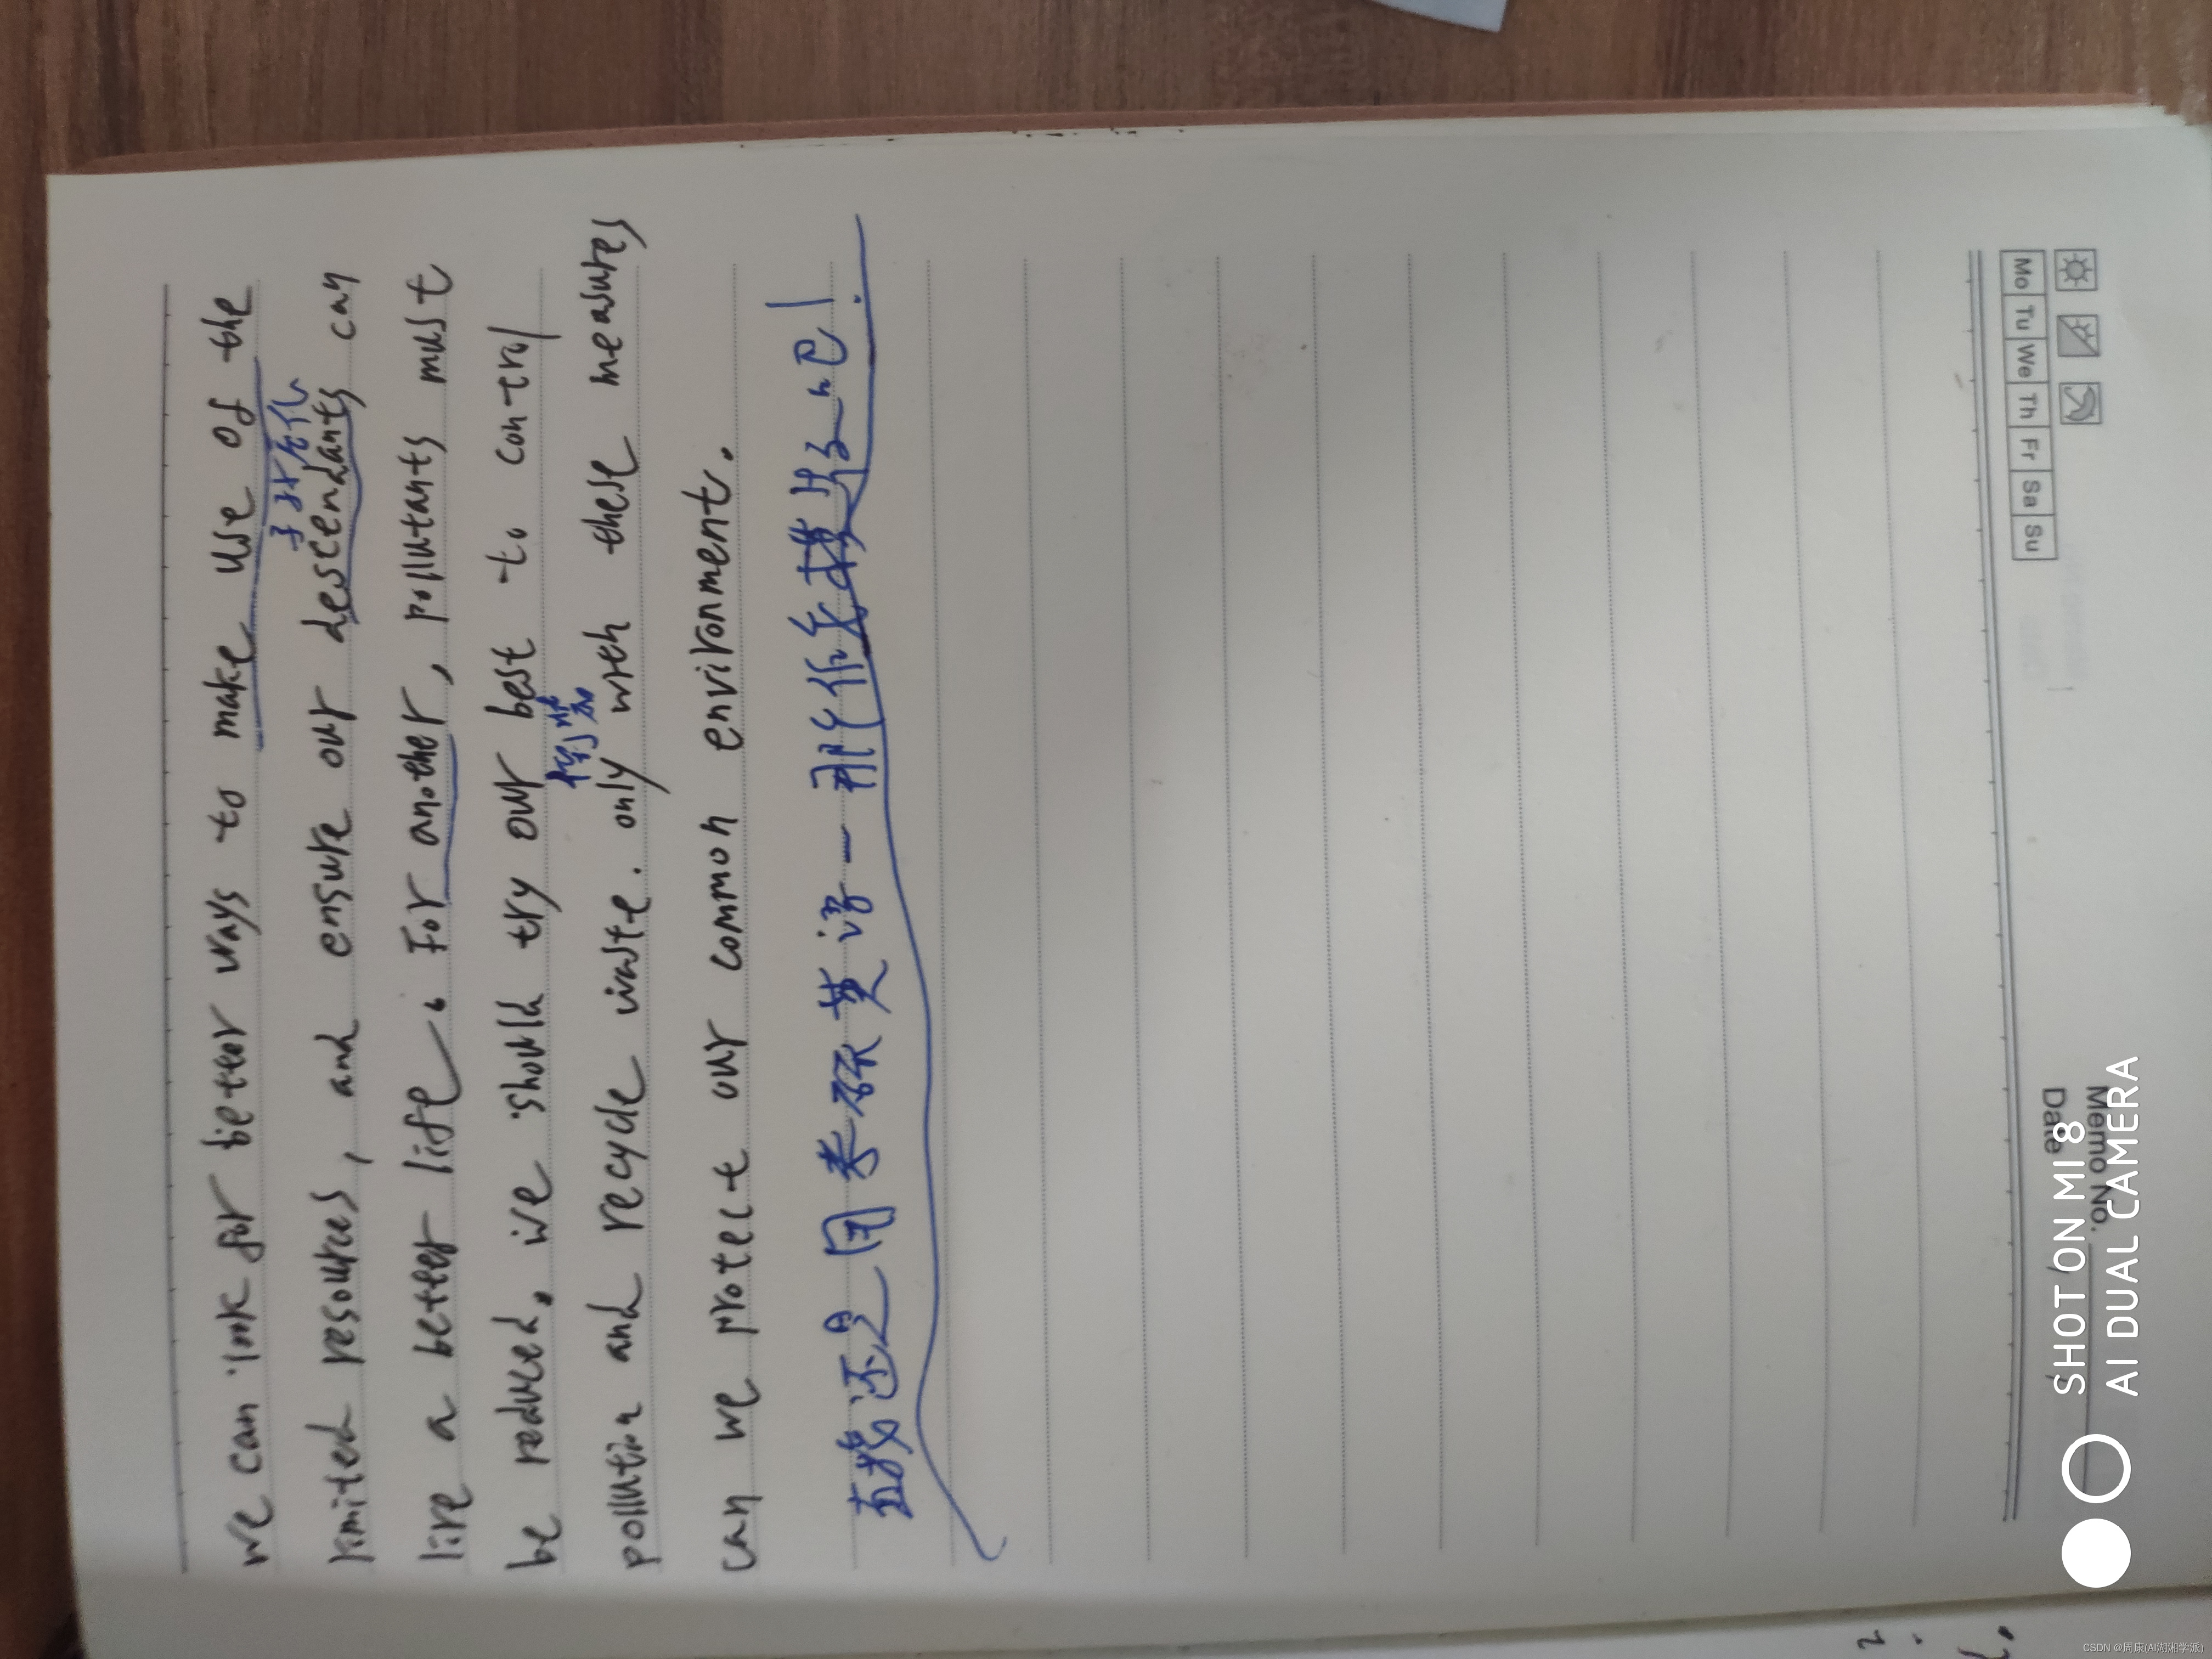 we can look for better ways to make use of the
limited resources, and ensure our descendants can
子孙后代
live a better life. For another, pollutants must
be reduced, we should try our best to control
倒装
pollution and recycle waste. only with these measures
can we protect our common environment.
直接还是用考研英语一那作文模板吧!
Mo Tu We Th Fr Sa Su
Memo No.
Date
SHOT ON MI 8
AI DUAL CAMERA
CSDN @周康(AI湖湘学派)